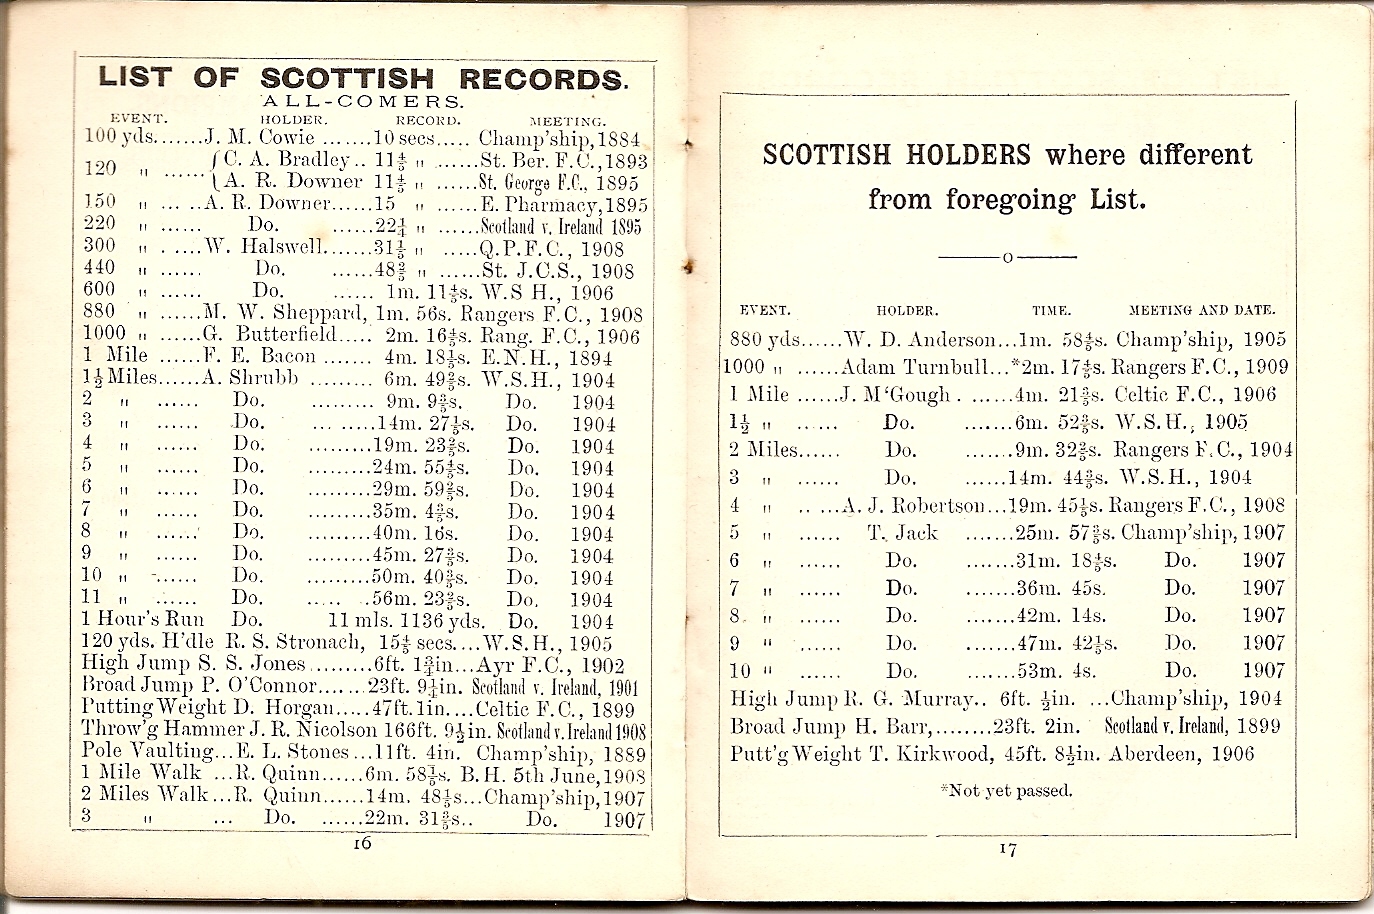 LIST OF SCOTTISH RECORDS.
ALL-COMERS.
EVENT. HOLDER. RECORD. MEETING.
100 yds.......J. M. Cowie .......10 secs..... Champ'ship, 1884
120 „ ...... { C. A. Bradley.. 11⅘ „ ......St. Ber. F.C., 1893
{ A. R. Downer 11⅘ „ ......St. George F.C., 1895
150 „ ... ..A. R. Downer......15 „ ......E. Pharmacy, 1895
220 „ ...... Do. ......22¼ „ ......Scotland v. Ireland 1895
300 „ . ....W. Halswell.......31⅕ „ ......Q.P.F.C., 1908
440 „ ...... Do. ......48⅖ „ ......St. J.C.S., 1908
600 „ ...... Do. ...... 1m. 11⅘s. W.S H., 1906
880 „ ......M. W. Sheppard, 1m. 56s. Rangers F.C., 1908
1000 „ ......G. Butterfield..... 2m. 16⅘s. Rang. F.C., 1906
1 Mile ......F. E. Bacon ...... 4m. 18⅕s. E.N.H., 1894
1½ Miles......A. Shrubb ......... 6m. 49⅗s. W.S.H., 1904
2 „ ...... Do. ......... 9m. 9⅗s. Do. 1904
3 „ ...... Do. ... ......14m. 27⅕s. Do. 1904
4 „ ...... Do. .........19m. 23⅖s. Do. 1904
5 „ ...... Do. .........24m. 55⅘s. Do. 1904
6 „ ...... Do. .........29m. 59⅖s. Do. 1904
7 „ ...... Do. .........35m. 4⅗s. Do. 1904
8 „ ...... Do. .........40m. 16s. Do. 1904
9 „ ...... Do. .........45m. 27⅗s. Do. 1904
10 „ ...... Do. .........50m. 40⅗s. Do. 1904
11 „ ...... Do. ..... ..56m. 23⅖s. Do. 1904
1 Hour's Run Do. 11 mls. 1136 yds. Do. 1904
120 yds. H'dle R. S. Stronach, 15⅘ secs....W.S.H., 1905
High Jump S. S. Jones ........6ft. 1¾in...Ayr F.C., 1902
Broad Jump P. O'Connor.......23ft. 9¼in. Scotland v. Ireland, 1901
Putting Weight D. Horgan.....47ft. 1in....Celtic F.C., 1899
Throw'g Hammer J. R. Nicolson 166ft. 9½in. Scotland v. Ireland 1908
Pole Vaulting...E. L. Stones...11ft. 4in. Champ'ship, 1889
1 Mile Walk ...R. Quinn......6m. 58⅕s. B.H. 5th June, 1908
2 Miles Walk...R. Quinn......14m. 48⅕s...Champ'ship, 1907
3 „ ... Do. ......22m. 31⅗s.. Do. 1907
16
SCOTTISH HOLDERS where different
from foregoing List.
o
EVENT. HOLDER. TIME. MEETING AND DATE.
880 yds......W. D. Anderson...1m. 58⅘s. Champ'ship, 1905
1000 „ ......Adam Turnbull...*2m. 17⅘s. Rangers F.C., 1909
1 Mile ......J. M‘Gough . ......4m. 21⅗s. Celtic F.C., 1906
1½ „ ...... Do. .......6m. 52⅗s. W.S.H., 1905
2 Miles...... Do. .......9m. 32⅖s. Rangers F.C., 1904
3 „ ...... Do. ......14m. 44⅗s. W.S.H., 1904
4 „ .. ...A. J. Robertson...19m. 45⅕s. Rangers F.C., 1908
5 „ ...... T. Jack ......25m. 57⅗s. Champ'ship, 1907
6 „ ...... Do. ......31m. 18⅘s. Do. 1907
7 „ ...... Do. ......36m. 45s. Do. 1907
8. „ ...... Do. ......42m. 14s. Do. 1907
9 „ ...... Do. ......47m. 42⅕s. Do. 1907
10 „ ...... Do. ......53m. 4s. Do. 1907
High Jump R. G. Murray.. 6ft. ½in. ...Champ'ship, 1904
Broad Jump H. Barr,........23ft. 2in. Scotland v. Ireland, 1899
Putt'g Weight T. Kirkwood, 45ft. 8½in. Aberdeen, 1906
*Not yet passed.
17